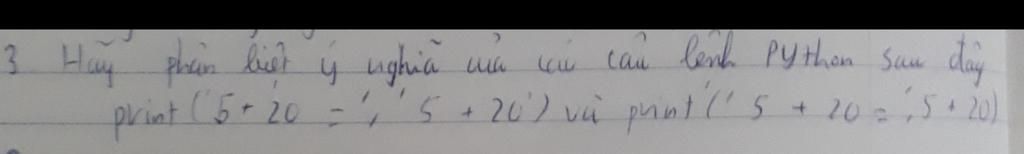 3 Hãy phân biệt ý nghĩa của các câu lệnh PYthon sau đây
print ('5 + 20 = ', ' 5 + 20') và print (' 5 + 20 = ', 5 + 20)